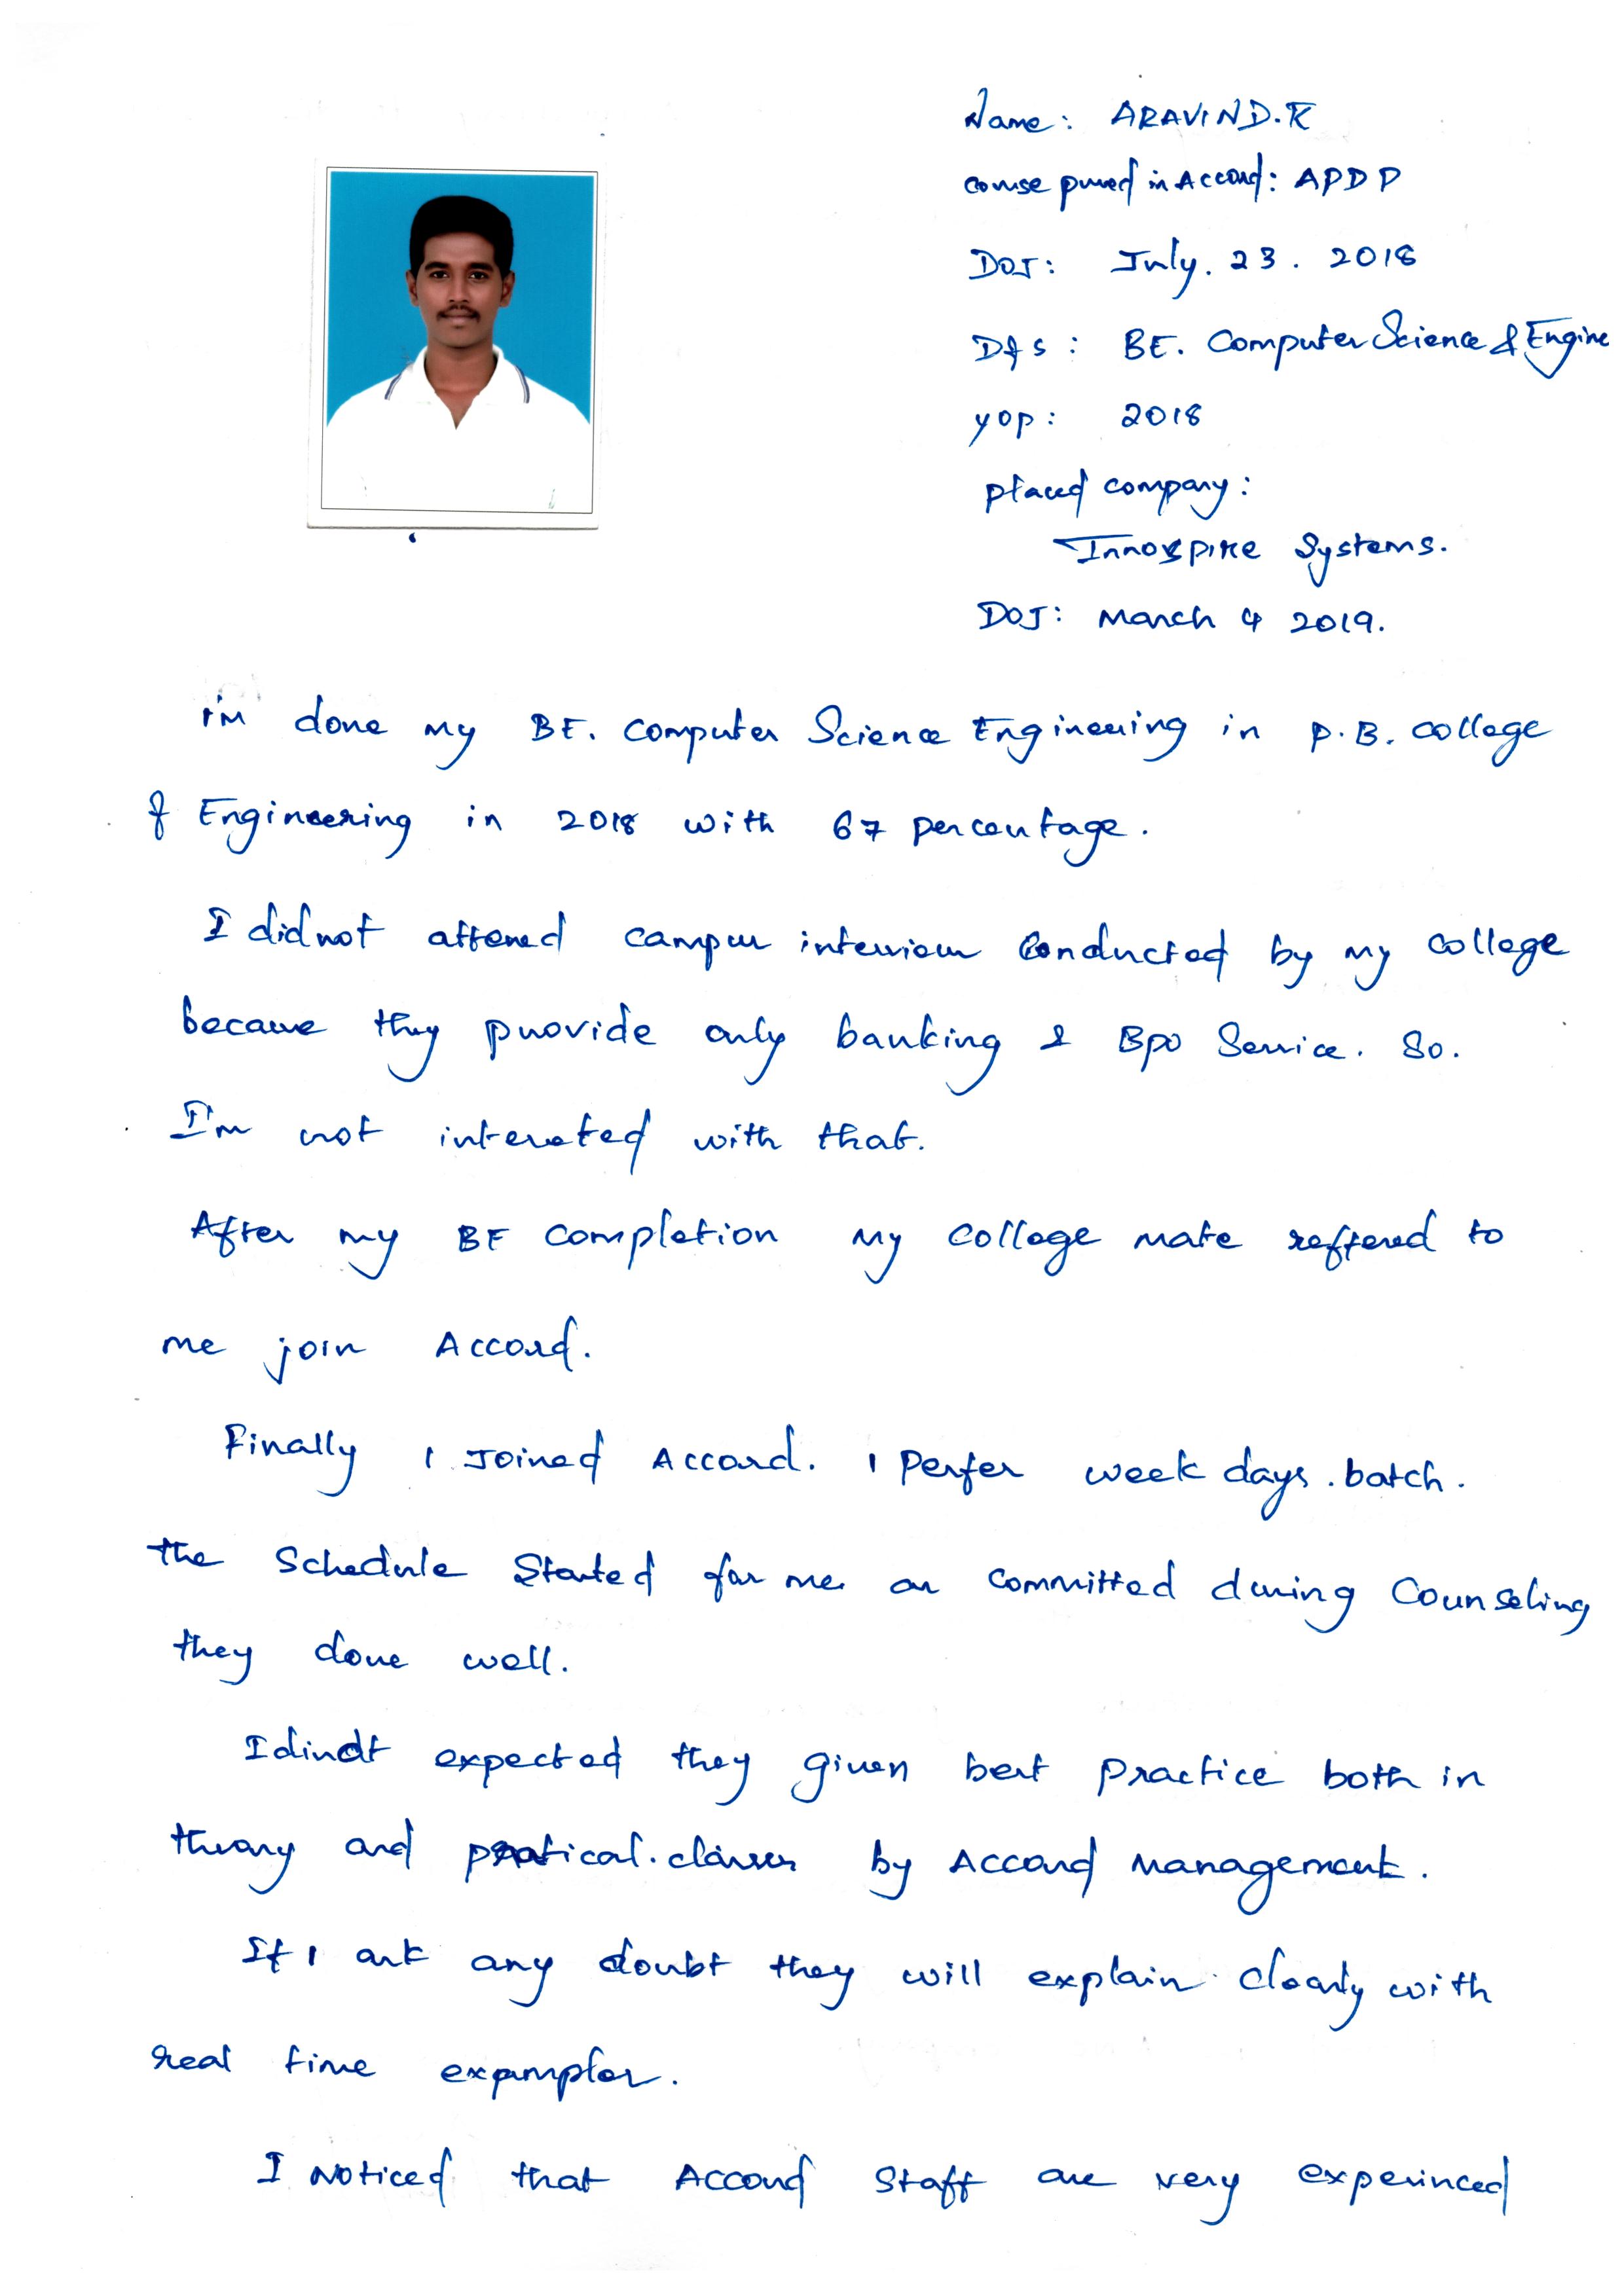 Name: ARAVIND.K
course pursed in Accord: APDP
DOJ: July. 23. 2018
D&S: BE. Computer Science & Engine
yop: 2018
placed company:
Innospire Systems.
DOJ: March 4 2019.
i'm done my BE. Computer Science Engineering in P.B. College
of Engineering in 2018 with 67 percentage.
I did not attened campus interview Conducted by my college
because they provide only banking & Bpo Service. So.
I'm not interested with that.
After my BE Completion my College mate reffered to
me join Accord.
Finally I Joined Accord. I Perfer week days.batch.
the Schedule Started for me as Committed during Counseling
they done well.
I dindt expected they given best Practice both in
theory and pratical.classes by Accord Management.
If I ask any doubt they will explain clearly with
real time expamples.
I Noticed that Accord Staff are very experinced